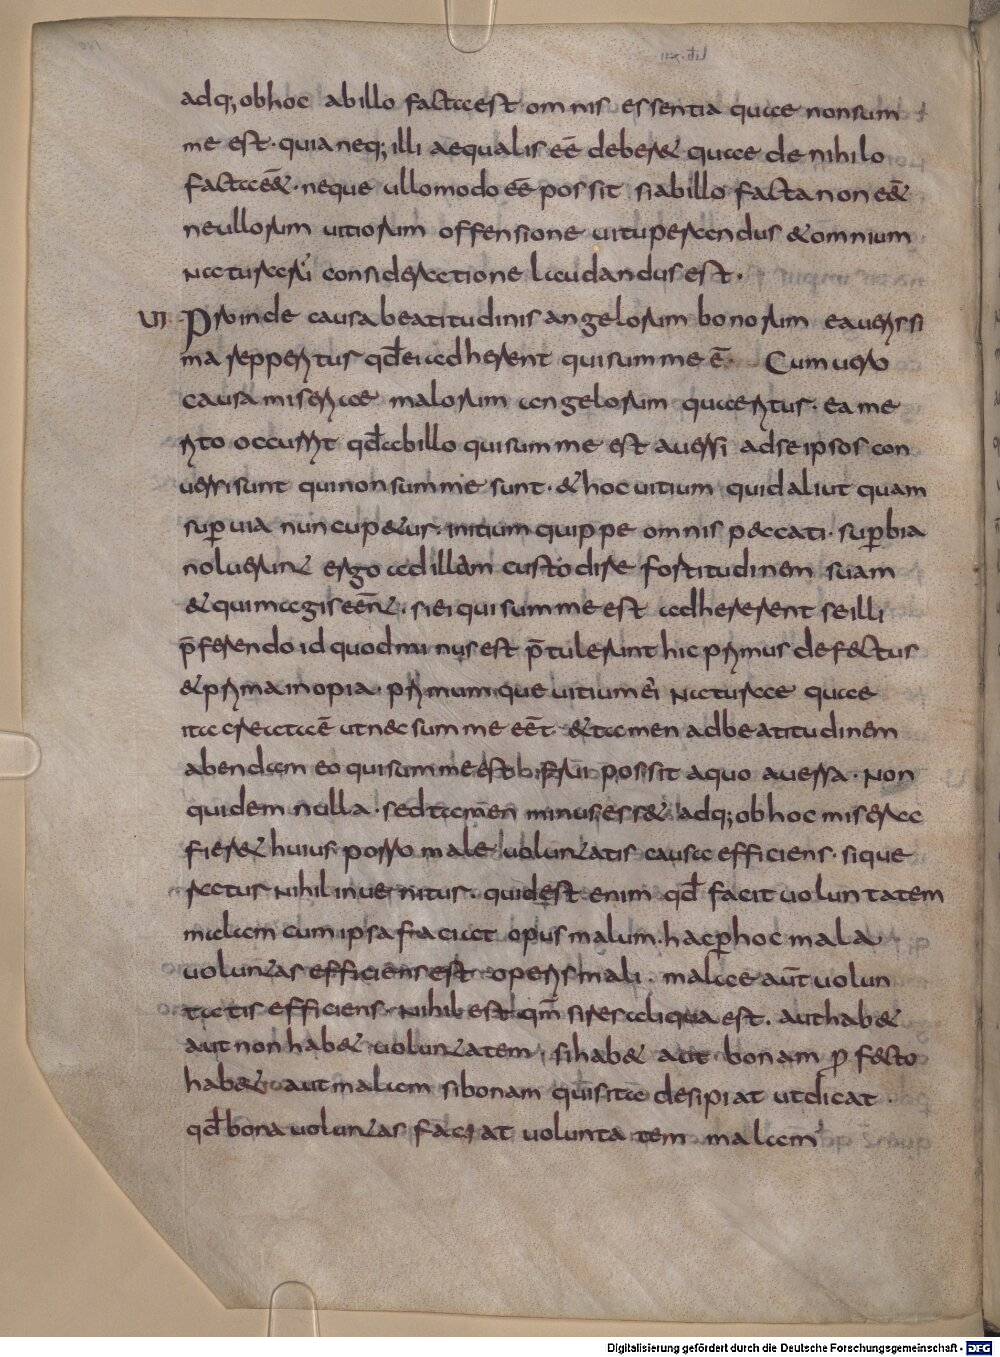 adq; obhoc abillo factaest omnis essentia quae nonsum
me est. quia neq; illi aequalis eē deberet quae de nihilo
facta eēt. neque ullomodo eē possit siabillo facta non eēt
neullorum uitiorum offensione uituperandus & omnium
naturarū consideratione laudandus est.
VI Proinde causa beatitudinis angelorum bonorum ea uerissi
ma repperitur qđ ei adherent qui summe ē. Cum uero
causa miseriae malorum angelorum quaeritur. ea me
rito occurrit qđ abillo qui summe est auersi adse ipsos con
uersi sunt qui non summe sunt. & hoc uitium quid aliut quam
supuia nuncupetur. initium quippe omnis peccati superbia
noluerunt ergo ad illum custodire fortitudinem suam
& qui magis eēnt. si ei qui summe est adhererent se illi
p̄ferendo id quod minus est p̄tulerunt hic primus defectus
& prima inopia. primumque uitium ei naturae quae
ita creata ē ut nec summe eēt. & tamen adbeatitudinem
abendam eo qui summe est frui possit aquo auersa. Non
quidem nulla. sed tamen minus esset adq; obhoc misera
fieret huius porro male uoluntatis causa efficiens. sique
ratur nihil inuenitur. quid est enim qđ facit uoluntatem
malam cum ipsa faciat opus malum. hac p hoc mala
uoluntas efficiens est operis mali. malae aūt uolun
tatis efficiens. Nihil est qm̄ si res aliqua est. aut habet
aut non habet uoluntatem. si habet aut bonam pfecto
habet aut malam si bonam quis ita desipiat ut dicat.
qđ bona uoluntas faciat uoluntatem malam
Lib. XII
Digitalisierung gefördert durch die Deutsche Forschungsgemeinschaft - DFG